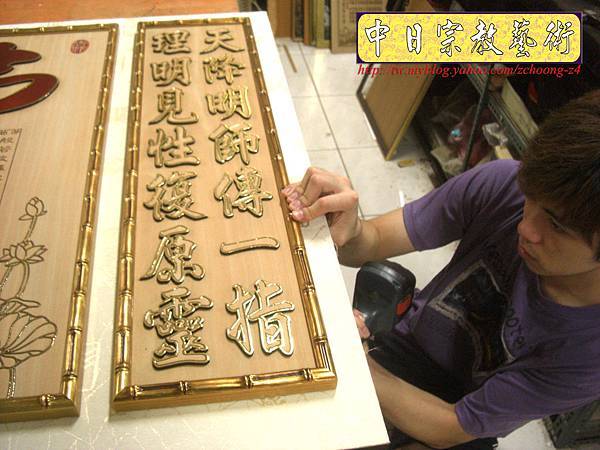 中日宗教藝術
http://tw.myblog.yahoo.com/zchoong-z4
天降明師傳一指
理明見性復原靈